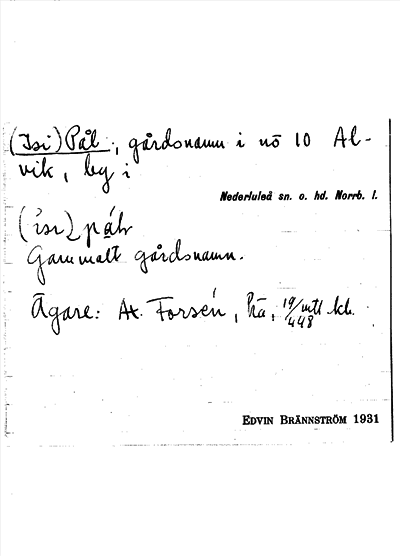 (Isi) Pål, gårdsnamn i nö 10 Al-
vik, by i
Nederluleå sn. o. hd. Norrb. l.
Gammalt gårdsnamn.
Ägare: Ax. Forsén, 19/448 mtl
EDVIN BRÄNNSTRÖM 1931